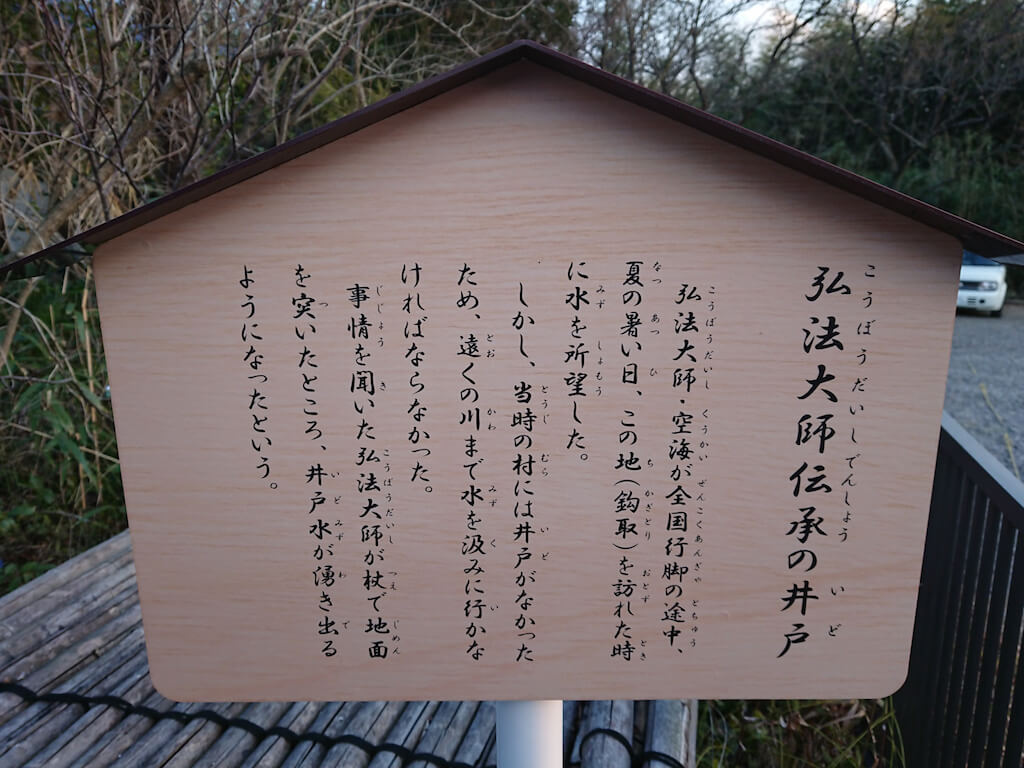 弘法大師伝承の井戸
弘法大師・空海が全国行脚の途中、
夏の暑い日、この地(鈎取)を訪れた時
に水を所望した。
しかし、当時の村には井戸がなかった
ため、遠くの川まで水を汲みに行かな
ければならなかった。
事情を聞いた弘法大師が杖で地面
を突いたところ、井戸水が湧き出る
ようになったという。